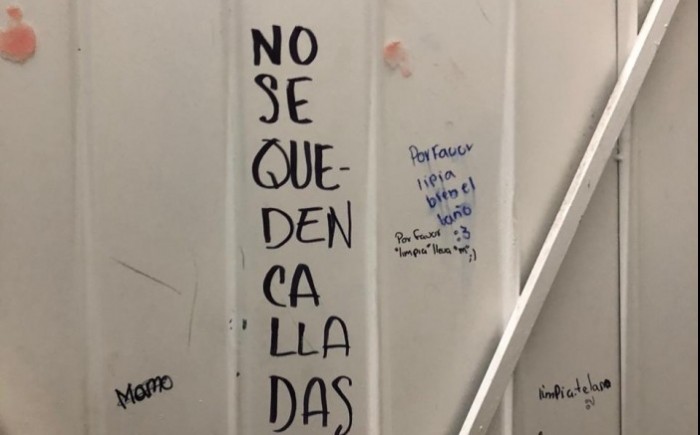 NO
SE
QUE-
DEN
CA
LLA
DAS
Por Favor
lipia
bien el
baño
:3
Por favor
"limpia" lleva "m" ;)
Momo
limpiatela